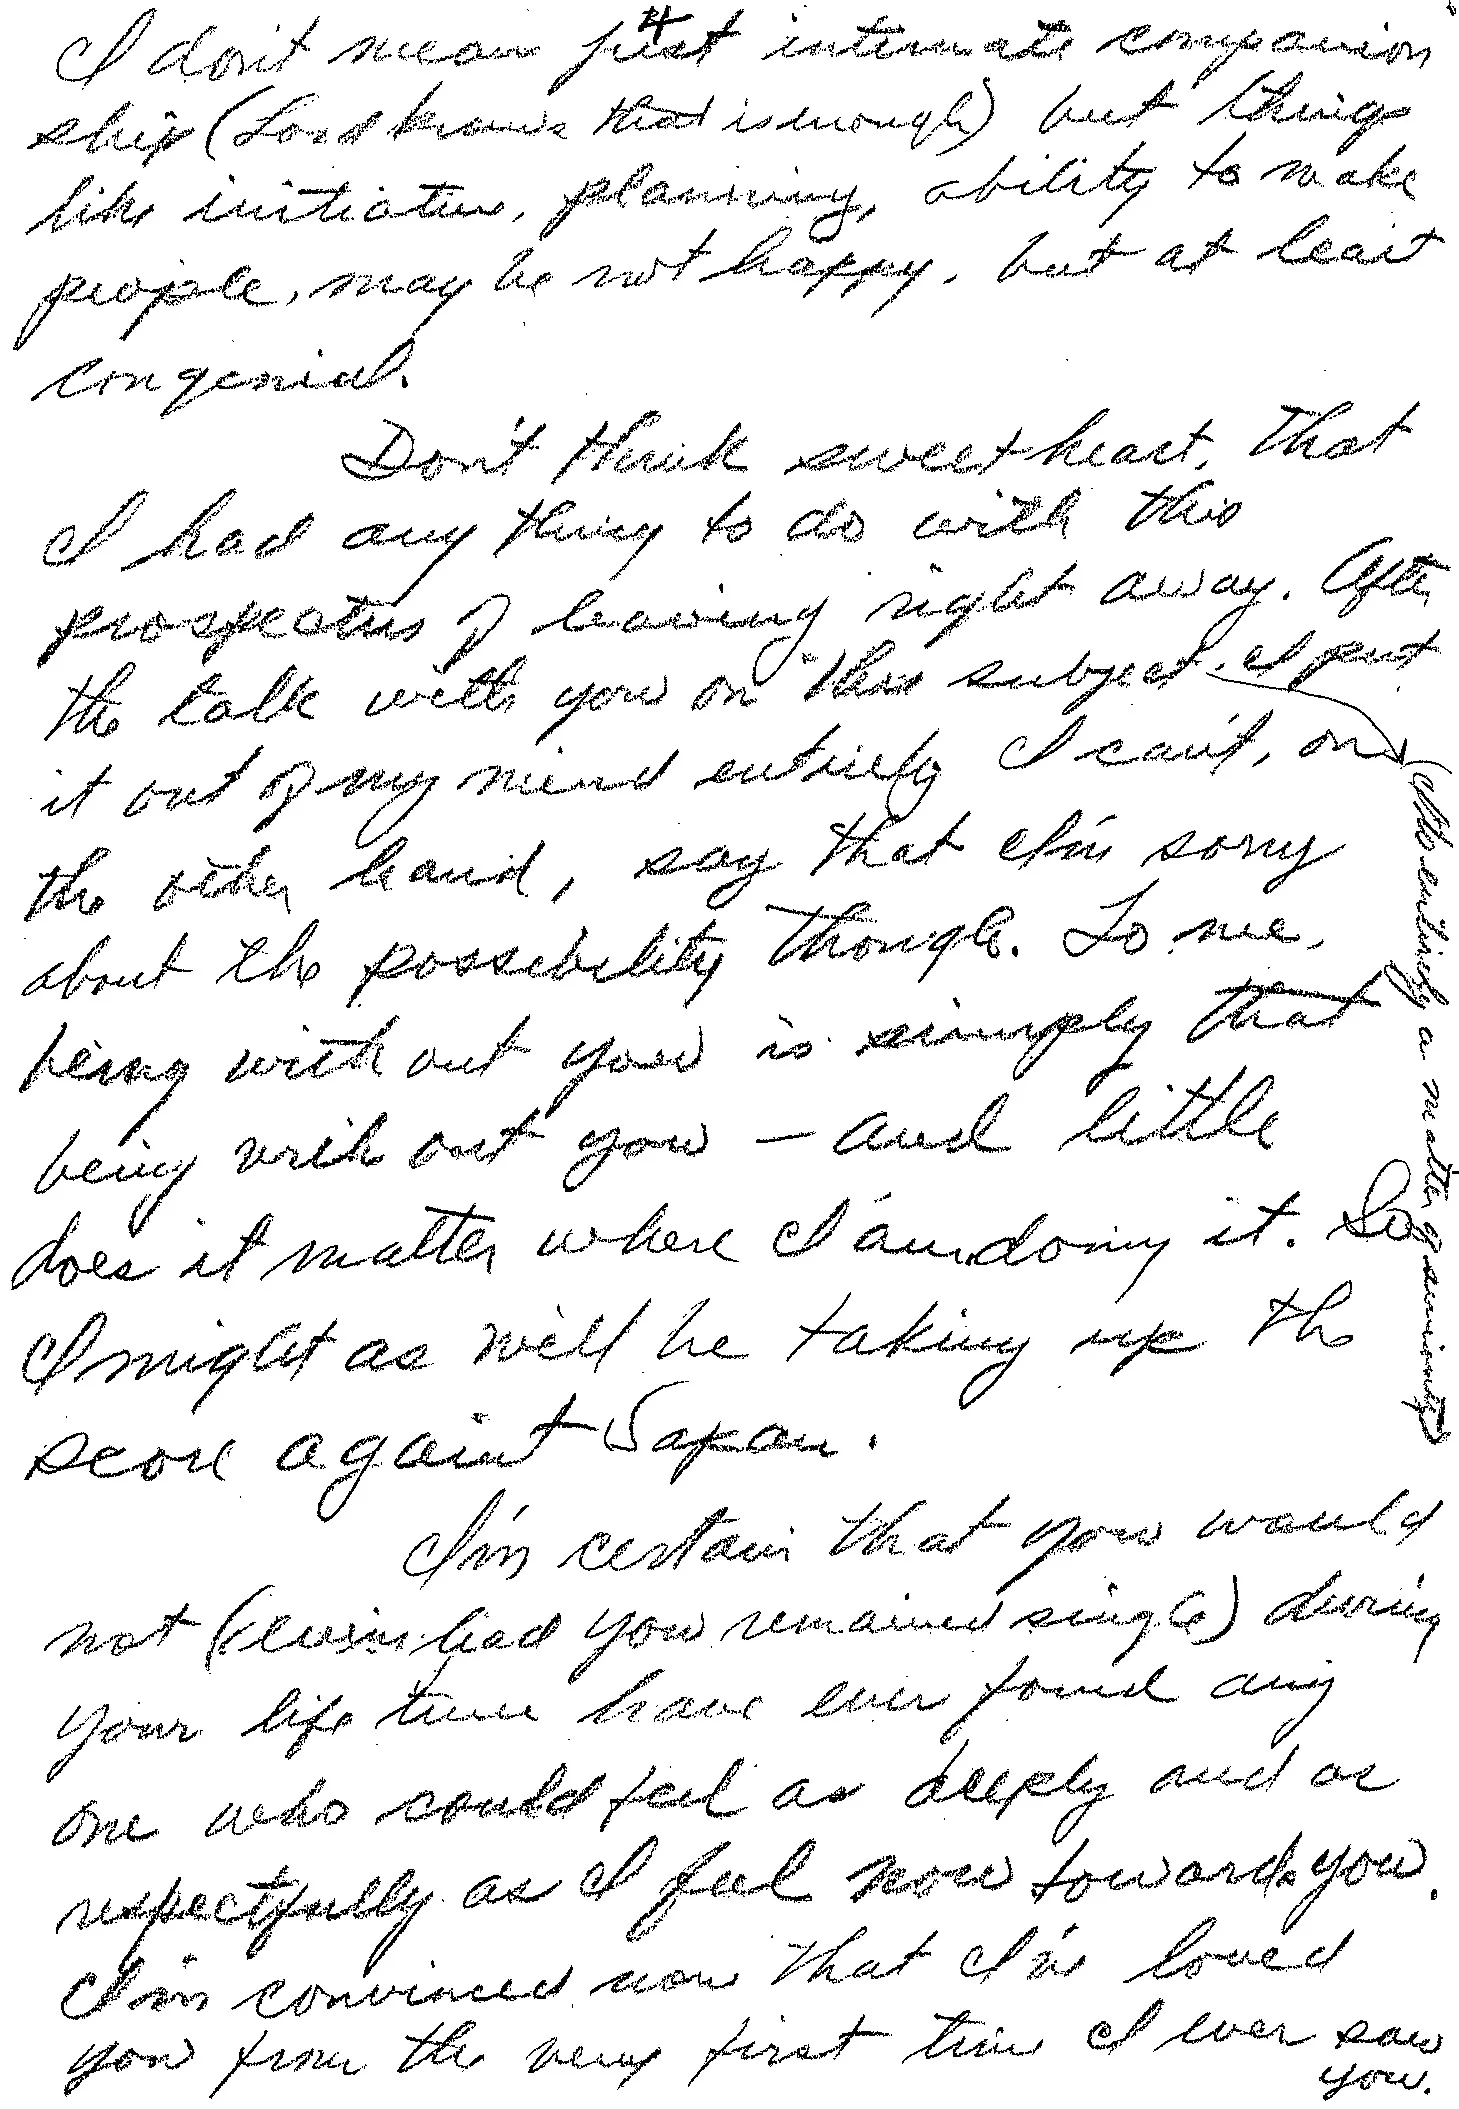 4
I don't mean just intimate companion
ship (Lord knows that is enough) but things
like initiative, planning, ability to make
people, may be not happy, but at least
congenial.
Don't think sweetheart, that
I had any thing to do with this
prospectus of leaving right away. After
the talk with you on this subject, I put
it out of my mind entirely I can't, on
the other hand, say that I'm sorry
about the possibility though. To me,
being with out you is simply that
being with out you — and little
does it matter where I am doing it. So
I might as well be taking up the
score against Japan.
I'm certain that you would
not (even had you remained single) during
your life time have ever found any
one who could feel as deeply and as
respectfully as I feel now towards you.
I'm convinced now that I've loved
you from the very first time I ever saw
you.
(Its entirely a matter of seniority)